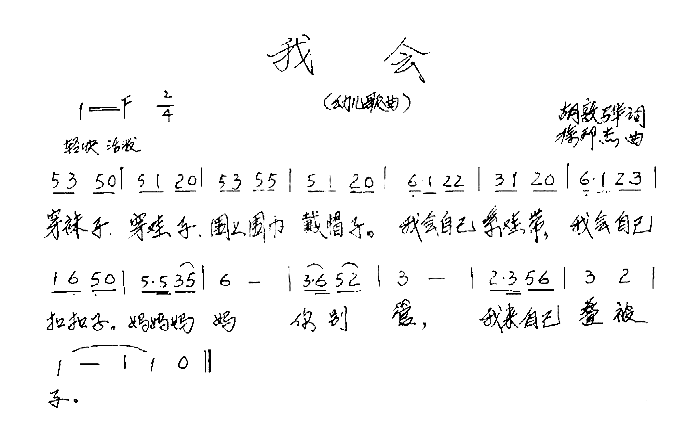 我 会
(幼儿歌曲)
1=F 2/4
胡敦骅词
杨邦杰曲
轻快 活泼
53 50 | 51 20 | 53 55 | 51 20 | 6·1 22 | 31 20 | 6·1 23 |
穿袜子、穿鞋子、围上围巾 戴帽子。我会自己系鞋带,我会自己
16 50 | 5·5 35 | 6 — | 3·6 52 | 3 — | 2·3 56 | 3 2 |
扣扣子。妈妈妈 妈 你别 管, 我来自己 叠被
1 — 1 1 0 ‖
子。